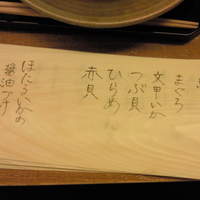 まぐろ
文甲いか
つぶ貝
ひらめ
赤貝
ほたるいかの
醤油づけ